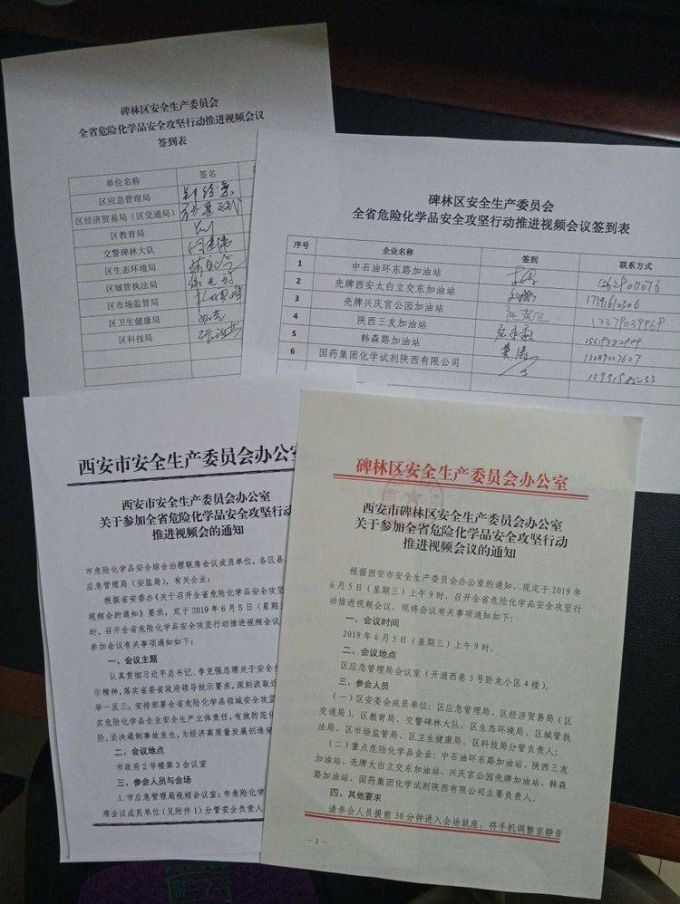 碑林区安全生产委员会
全省危险化学品安全攻坚行动推进视频会议
签到表
单位名称 签名
区应急管理局
区经济贸易局（区交通局）
区教育局
交警碑林大队
区生态环境局
区城管执法局
区市场监管局
区卫生健康局
区科技局
碑林区安全生产委员会
全省危险化学品安全攻坚行动推进视频会议签到表
序号 企业名称 签到 联系方式
1 中石油环东路加油站
2 壳牌西安太白立交东加油站
3 壳牌兴庆宫公园加油站
4 陕西三友加油站
5 韩森路加油站
6 国药集团化学试剂陕西有限公司
西安市安全生产委员会办公室
西安市安全生产委员会办公室
关于参加全省危险化学品安全攻坚行动
推进视频会的通知
市危险化学品安全综合治理联席会议成员单位，各区县、
应急管理局（安监局），有关企业：
根据省安委办《关于召开全省危险化学品安全攻坚
视频会的通知》要求，定于 2019 年 6 月 5 日（星期三
时，召开全省危险化学品安全攻坚行动推进视频会议
参加会议有关事项通知如下：
一、会议主题
认真贯彻习近平总书记、李克强总理关于安全生
示精神，落实省委省政府领导批示要求，深刻汲取近
举一反三，安排部署全省危险化学品领域安全攻坚
实危险化学品企业安全生产主体责任，有效防范化
险，坚决遏制事故发生，为经济高质量发展创造安
二、会议地点
市政府 2 号楼第 3 会议室
三、参会人员与会场
1.市应急管理局视频会议室：市危险化学
席会议成员单位（见附件 1）分管安全负责人
碑林区安全生产委员会办公室
西安市碑林区安全生产委员会办公室
关于参加全省危险化学品安全攻坚行动
推进视频会议的通知
根据西安市安全生产委员会办公室的通知，现定于 2019 年
6 月 5 日（星期三）上午 9 时，召开全省危险化学品安全攻坚行
动推进视频会议，现将会议有关事项通知如下：
一、会议时间
2019 年 6 月 5 日（星期三）上午 9 时。
二、会议地点
区应急管理局会议室（开通西巷 3 号卧龙小区 4 楼）。
三、参会人员
（一）区安委会成员单位：区应急管理局、区经济贸易局（区
交通局）、区教育局、交警碑林大队、区生态环境局、区城管执
法局、区市场监管局、区卫生健康局、区科技局分管负责人；
（二）重点危险化学品企业：中石油环东路加油站、陕西三友
加油站、壳牌太白立交东加油站、兴庆宫公园壳牌加油站、韩森
路加油站、国药集团化学试剂陕西有限公司主要负责人。
四、其他要求
请参会人员提前 30 分钟进入会场就座，将手机调整至静音
- 1 -